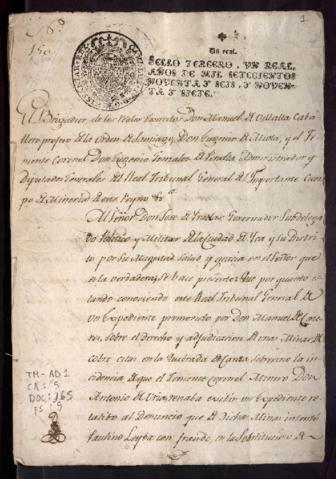 1
Un real.
SELLO TERCERO, UN REAL,
AÑOS DE MIL SETECIENTOS
NOVENTA Y SEIS, Y NOVEN-
TA Y SIETE.
El Brigadier de los Reales Exercitos Don Manuel de Villalta Caba
llero profeso de la Orden de Santiago, Don Eugenio de y el Te
niente Coronel Don Eugenio Gonzales de Peñalva Administrador y
Diputados Generales del Real Tribunal General del Importante Cuer
po de Mineria de este Reyno &a
Al Señor Don Jose de Governador Subdelega
do Politico y Militar de la Ciudad de Yca y su Distrito
por Su Magestad Salud y gracia en el Señor que
es la verdadera: Se hace presente: Que por quanto es
tando conociendo este Real Tribunal General de
un Expediente promovido por Don Manuel de
sobre el derecho y adjudicacion de unas Minas de
Cobre citas en la Quebrada de sobrevino la in
cidencia de que el Teniente coronel Don
Antonio de exibir un Expediente re
latibo al Denuncio que de Dichas Minas intentó
Paulino Leyba con fraude, en la Substitucion de
TM-AD1
CA: 5
DOC: 165
fs 9